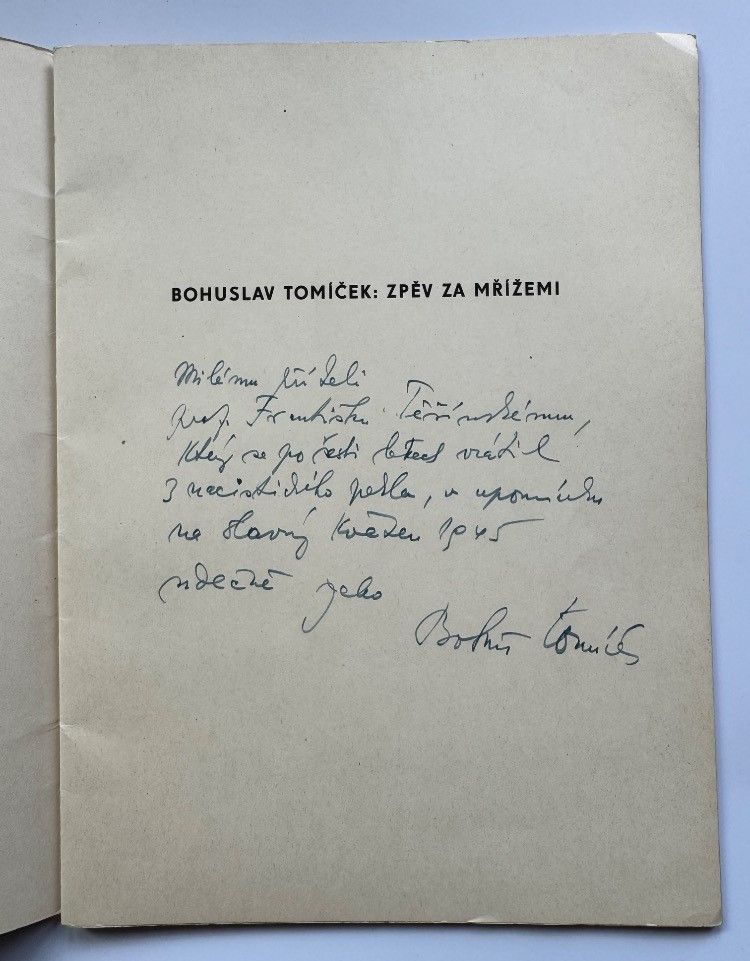 BOHUSLAV TOMÍČEK: ZPĚV ZA MŘÍŽEMI
Milému příteli
prof. Františku Těšínskému,
který se po šesti letech vrátil
z nacistického pekla, v upomínku
na slavný Květen 1945
srdečně jeho
Bohuš Tomíček